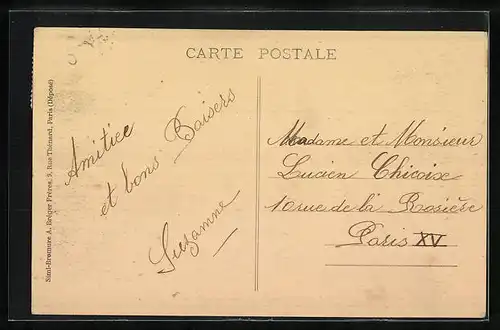 CARTE POSTALE
Simi-Bromure A. Breger Frères, 9, Rue Thénard, Paris (Déposé)
Amitiee
et bons Baisers
Suzanne
Madame et Monsieur
Lucien Chicoix
10 rue de la Rosière
Paris XV